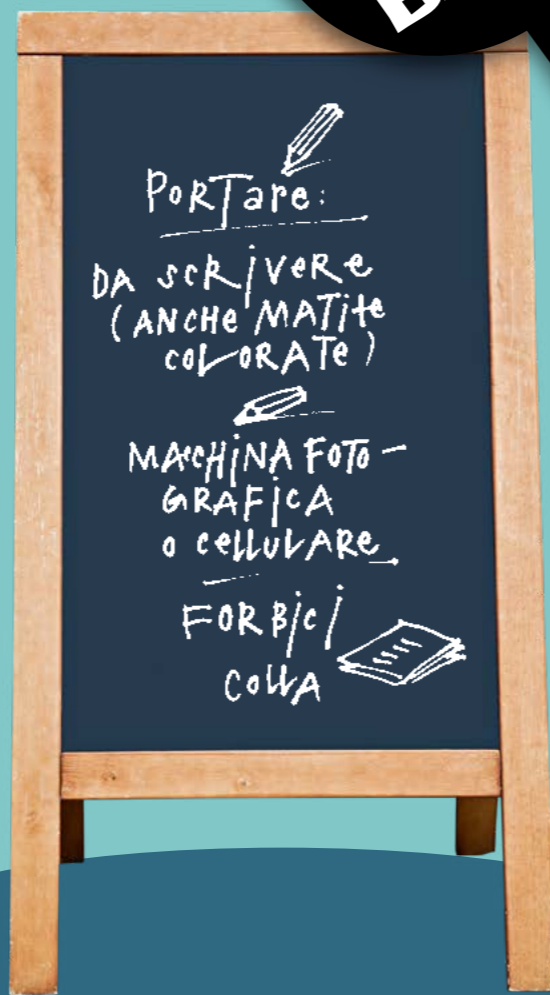 PORTare:
DA SCRIVERE
(ANCHE MATITE
COLORATE)
MACCHINA FOTO-
GRAFICA
o CELLULARE
FORBICI
COLLA